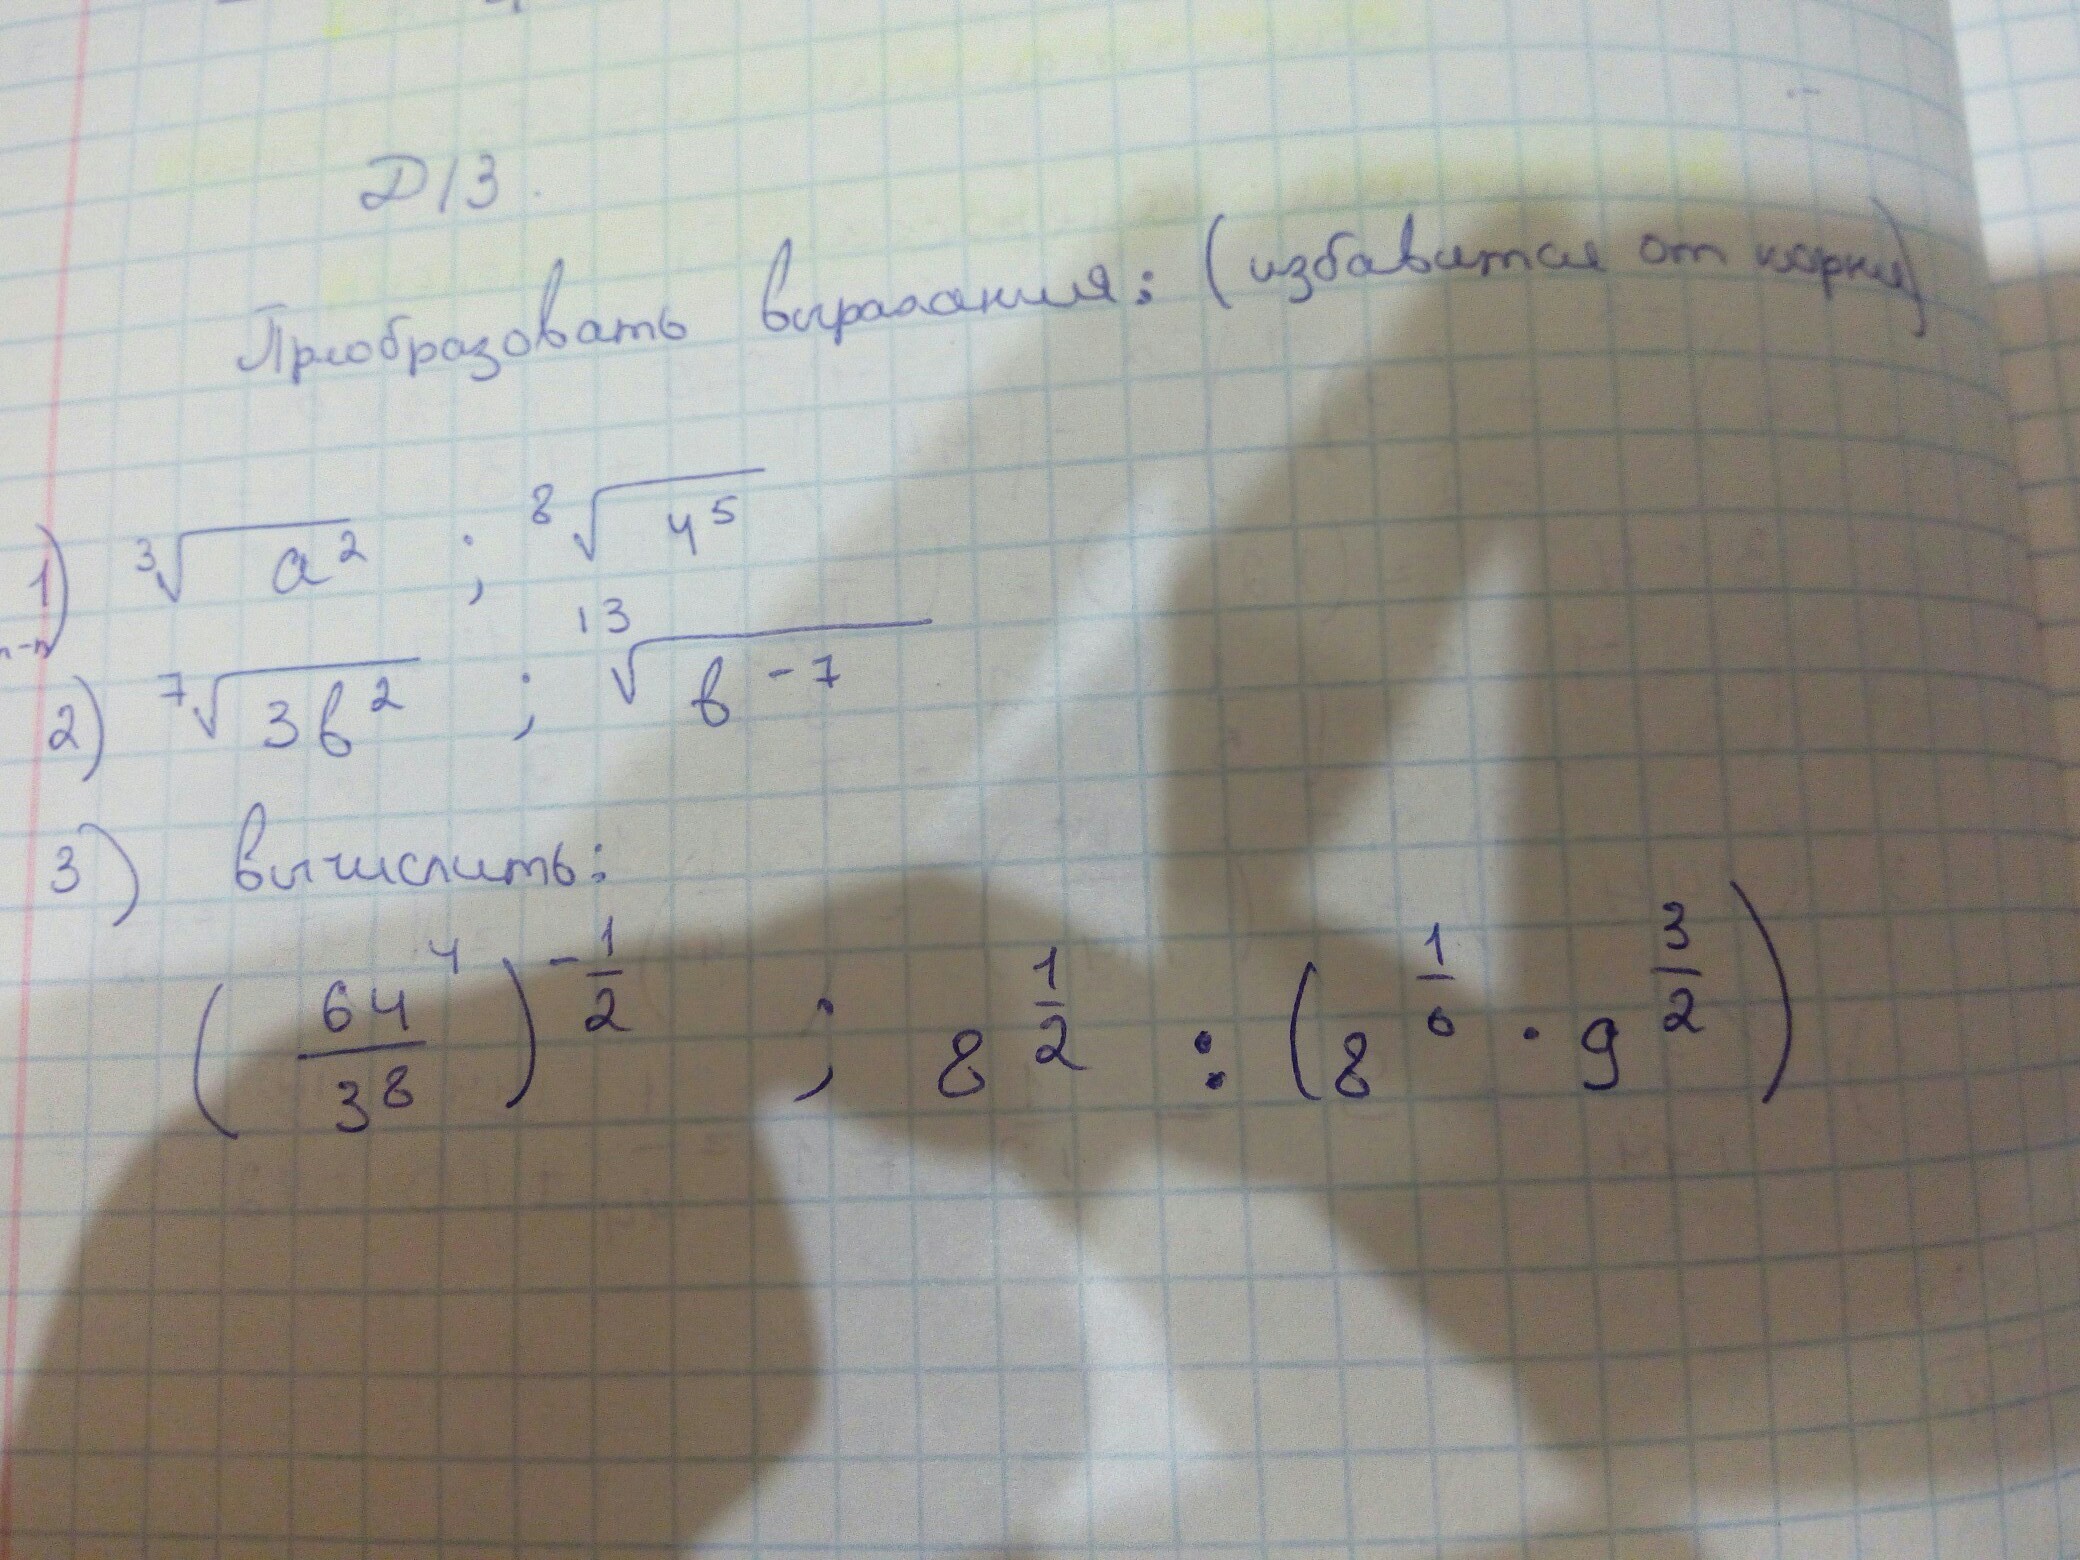 Д/З.
Преобразовать выражания: (избавится от корня)
1) ∛a² ; ⁸√4⁵
n-n
2) ⁷√3b² ; ¹³√b⁻⁷
3) вычислить:
(64⁴/3⁸)^(-1/2) ; 8^(1/2) : (8^(1/6) · 9^(3/2))